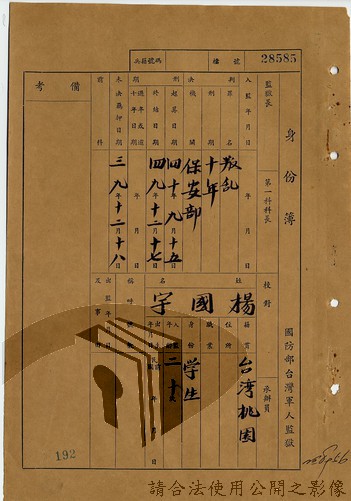 28585
檔號
兵籍號碼
身份簿
國防部台灣軍人監獄
監獄長
第一科科長
校對
承辦員
入監年月日 年 月 日
罪名 叛乱
刑期 十年
保安部
起算日期 四十年九月十五日
終結日期 四九年十二月十七日
未決羈押日期 三九年十二月十八日
前科
備考
姓名
楊國宇
籍貫 台湾桃園
住所
職業 学生
身份
二十
192
請合法使用公開之影像